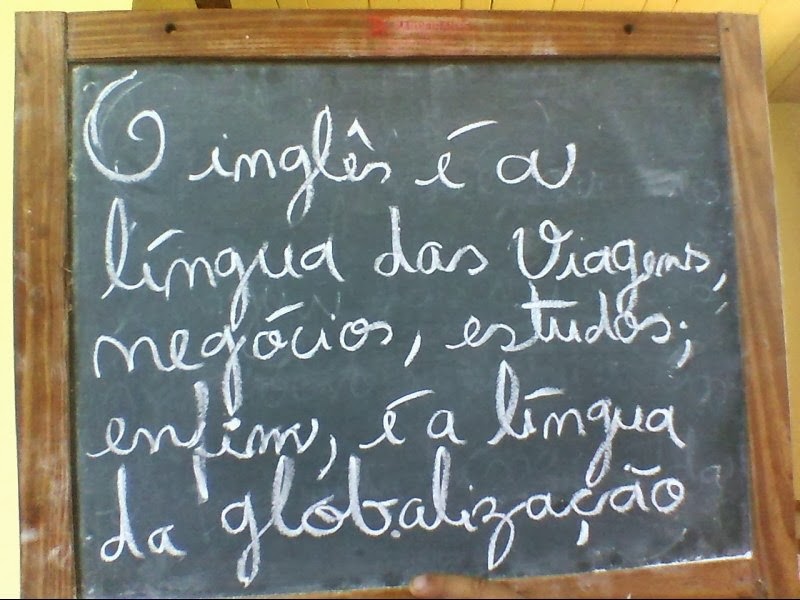 O inglês é a
língua das Viagens,
negócios, estudos;
enfim, é a língua
da globalização